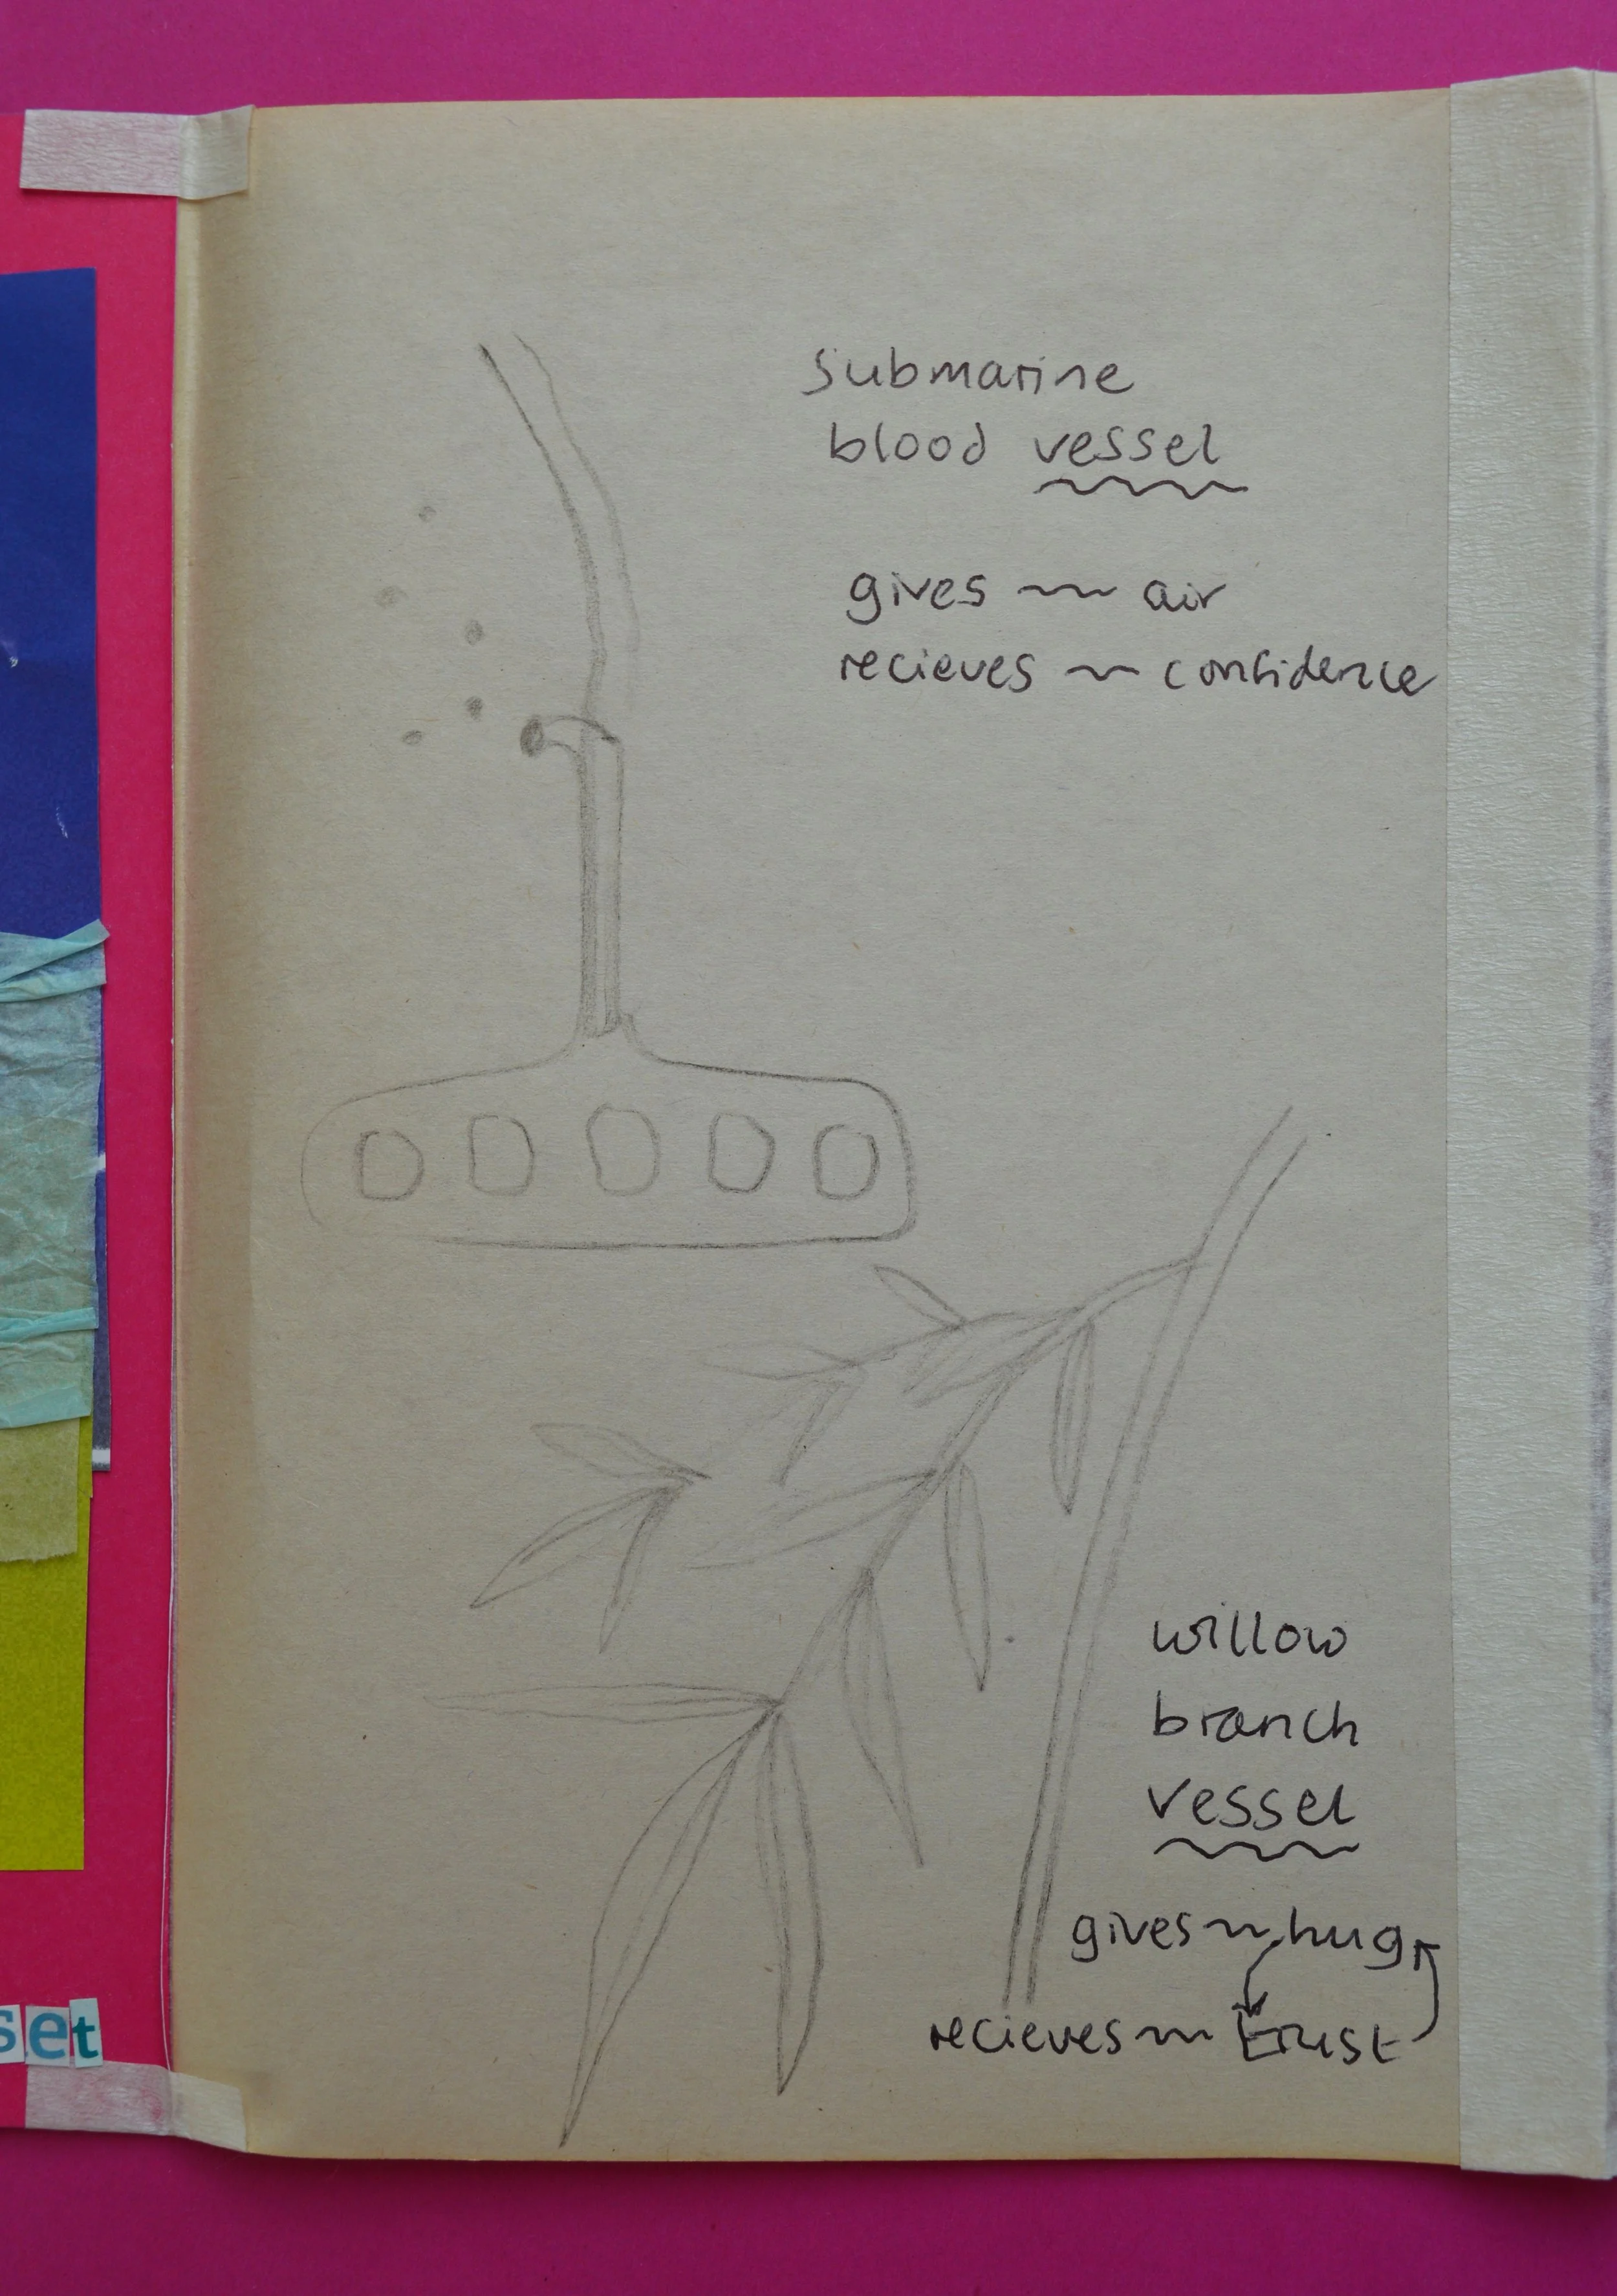 submarine
blood vessel
gives ~ air
recieves ~ confidence
willow
branch
vessel
gives ~ hug
recieves ~ trust
set